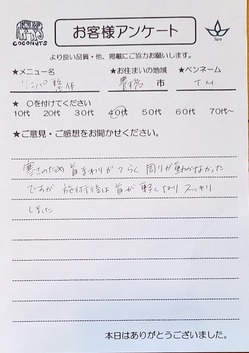 COCONUTS
お客様アンケート
spa
より良い品質・他、掲載にご協力お願いします。
★メニュー名 ★お住まいの地域 ★ペンネーム
リンパ整体 豊橋 市 T.M
★ ○を付けてください
10代 20代 30代 40代 50代 60代 70代~
★ご意見・ご感想をお聞かせください。
寒さのため 首まわりがつらく 周りが動かなかった
ですが 施術後は首が軽くなり スッキリ
しました
本日はありがとうございました。